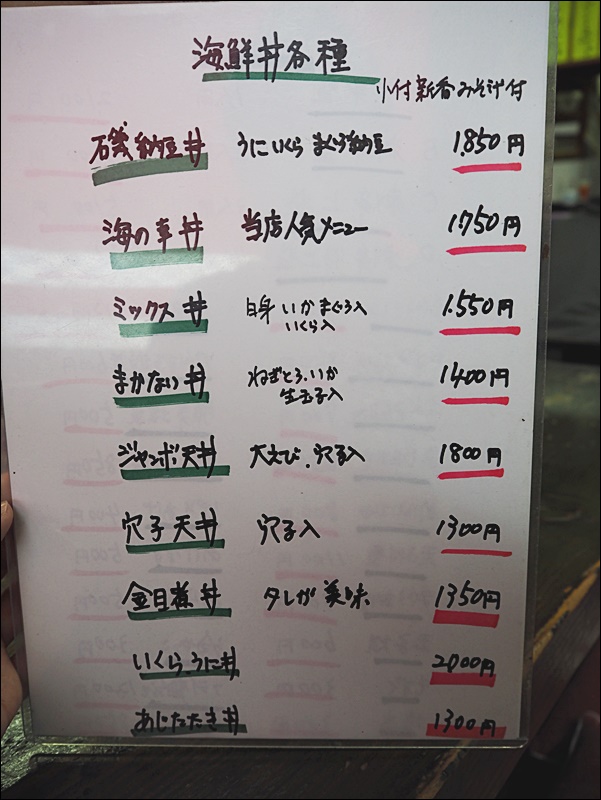 海鮮丼各種
小付 新香 みそ汁付
磯納豆丼 うに いくら まぐろ 納豆 1.850円
海の幸丼 当店人気メニュー 1.750円
ミックス丼 白身 いか まぐろ入 1.550円
いくら入
まかない丼 ねぎとろ.いか 1400円
生玉子入
ジャンボ天丼 大えび.穴子入 1800円
穴子天丼 穴子入 1300円
金目煮丼 タレが美味 1350円
いくら.うに丼 2000円
あじたたき丼 1300円